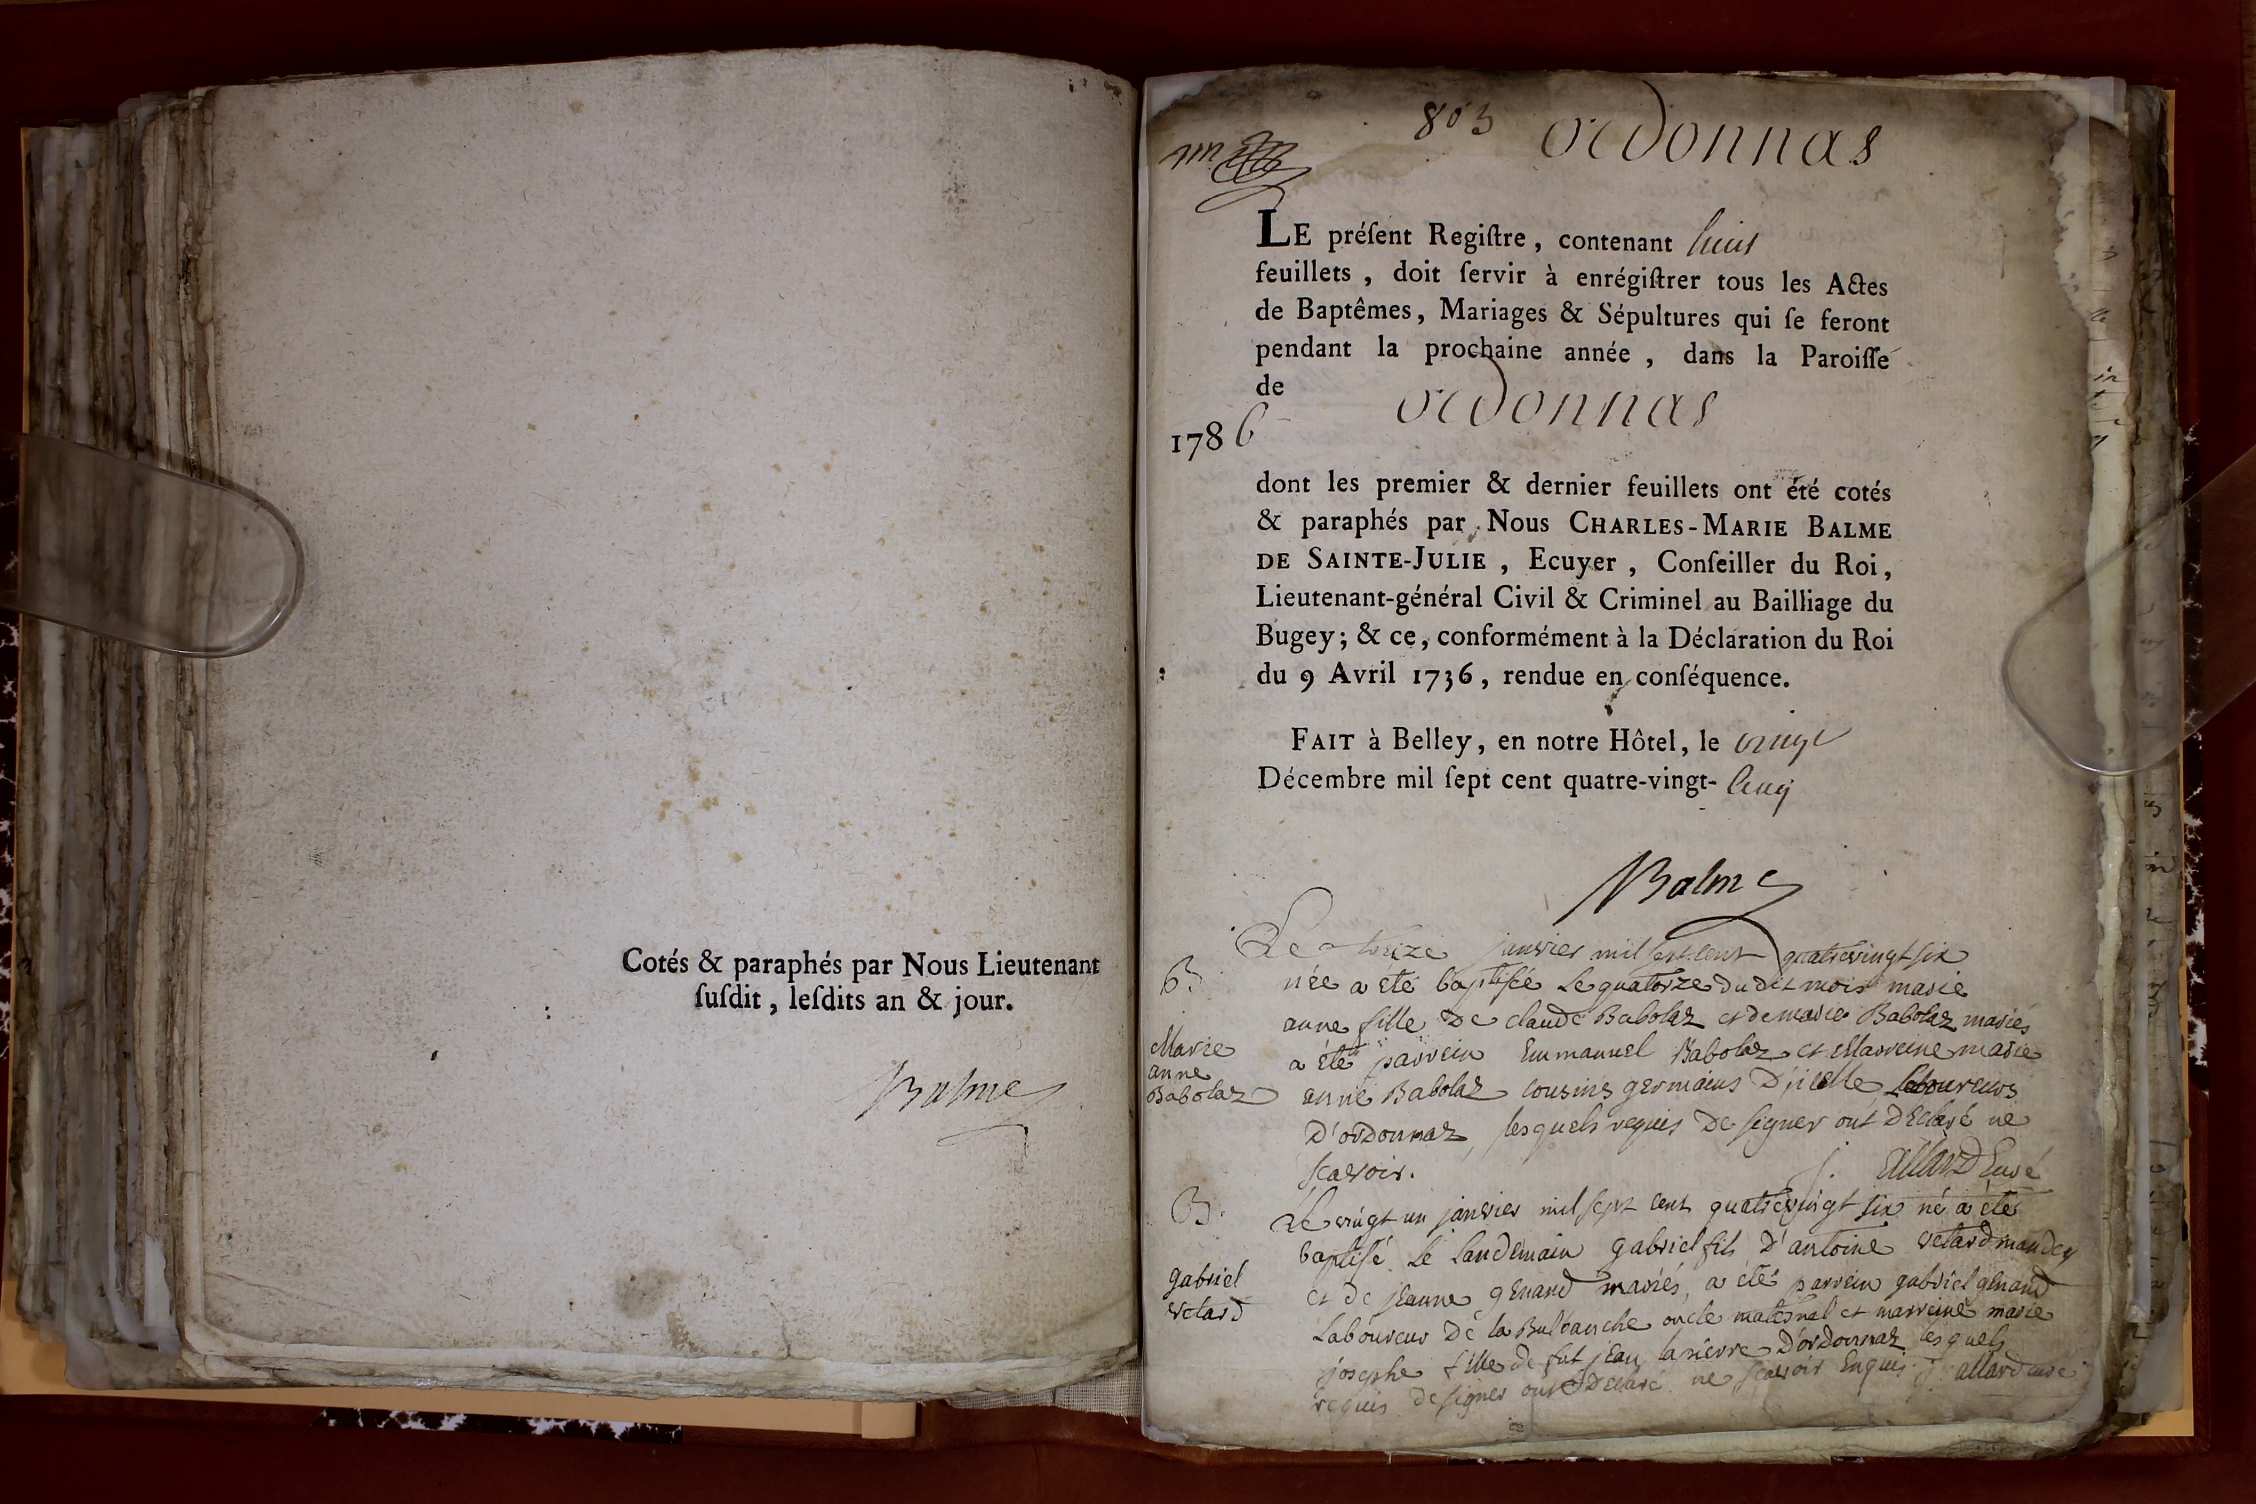 Cotés & paraphés par Nous Lieutenant
ſuſdit, leſdits an & jour.
Balme
803 ordonnas
LE préſent Regiſtre, contenant huit
feuillets, doit ſervir à enrégiſtrer tous les Actes
de Baptêmes, Mariages & Sépultures qui ſe feront
pendant la prochaine année, dans la Paroiſſe
de
ordonnas
1786
dont les premier & dernier feuillets ont été cotés
& paraphés par Nous CHARLES-MARIE BALME
DE SAINTE-JULIE, Ecuyer, Conſeiller du Roi,
Lieutenant-général Civil & Criminel au Bailliage du
Bugey; & ce, conformément à la Déclaration du Roi
du 9 Avril 1736, rendue en conſéquence.
FAIT à Belley, en notre Hôtel, le vingt
Décembre mil ſept cent quatre-vingt-cinq
Balme
Le janvier mil sept cent quatrevingt six
B.
née a eté baptisée le quatorze dudit mois marie
anne fille de claude Babolaz et de marie Babolaz mariés
Marie
anne
Babolaz
a été parrein Emmanuel Babolaz et Marreine marie
anne Babolaz cousins germains d'icelle laboureurs
D'ordonnaz, lesquels requis de signer ont déclaré ne
scavoir.
j. allard Curé
B.
Le vingt un janvier mil sept cent quatrevingt six né a été
baptisé le landemain gabriel fils d'antoine velard
gabriel
velard
et de jeanne genand mariés, a été parrein gabriel genand
Laboureur de la Bulvanche oncle maternel et marreine marie
josephe fille de fut jean lapierre D'ordonnaz lesquels
requis de signer ont déclaré ne scavoir Enquis j. allard curé